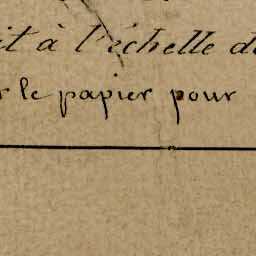 à l'échelle
le papier pour